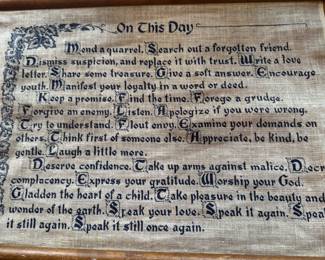 On This Day
Mend a quarrel. Search out a forgotten friend.
Dismiss suspicion, and replace it with trust. Write a love
letter. Share some treasure. Give a soft answer. Encourage
youth. Manifest your loyalty in a word or deed.
Keep a promise. Find the time. Forego a grudge.
Forgive an enemy. Listen. Apologize if you were wrong.
Try to understand. Flout envy. Examine your demands on
others. Think first of someone else. Appreciate, be kind, be
gentle. Laugh a little more.
Deserve confidence. Take up arms against malice. Decr
complacency. Express your gratitude. Worship your God.
Gladden the heart of a child. Take pleasure in the beauty and
wonder of the earth. Speak your love. Speak it again. Spea
it still again. Speak it still once again.